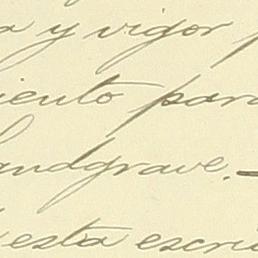 a y vigor p
iento para
andgrave.—
esta escri